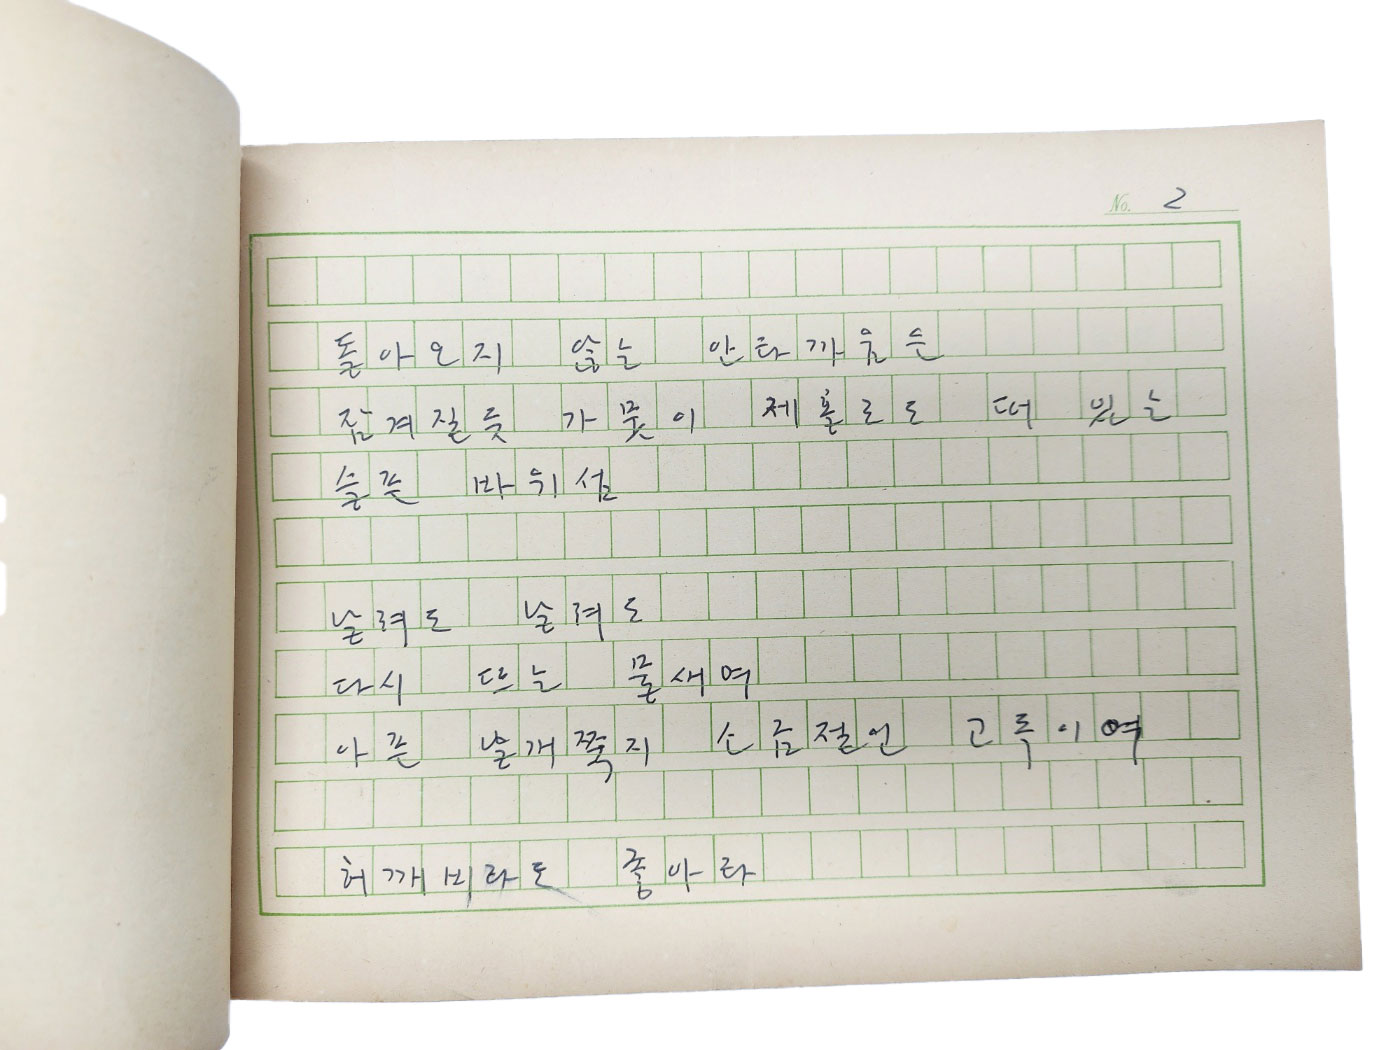 No. 2
돌아오지 않는 안타까움은
잠겨질듯 가뭇이 제홀로도 떠 있는
슬픈 바위섬
날려도 날려도
다시 뜨는 물새여
아픈 날개쭉지 소금절인 고독이여
허깨비라도 좋아라